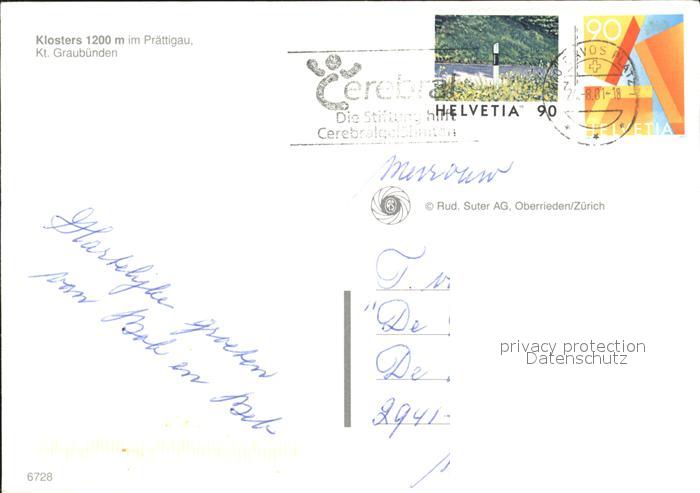 Klosters 1200 m im Prättigau,
Kt. Graubünden
Cerebral
Die Stiftung hilft
Cerebralgelähmten
HELVETIA 90
90
HELVETIA
Mevrouw
© Rud. Suter AG, Oberrieden/Zürich
Hartelijke groeten
van Bok en Bek
T. v
"De
De
2941-
privacy protection
Datenschutz
6728